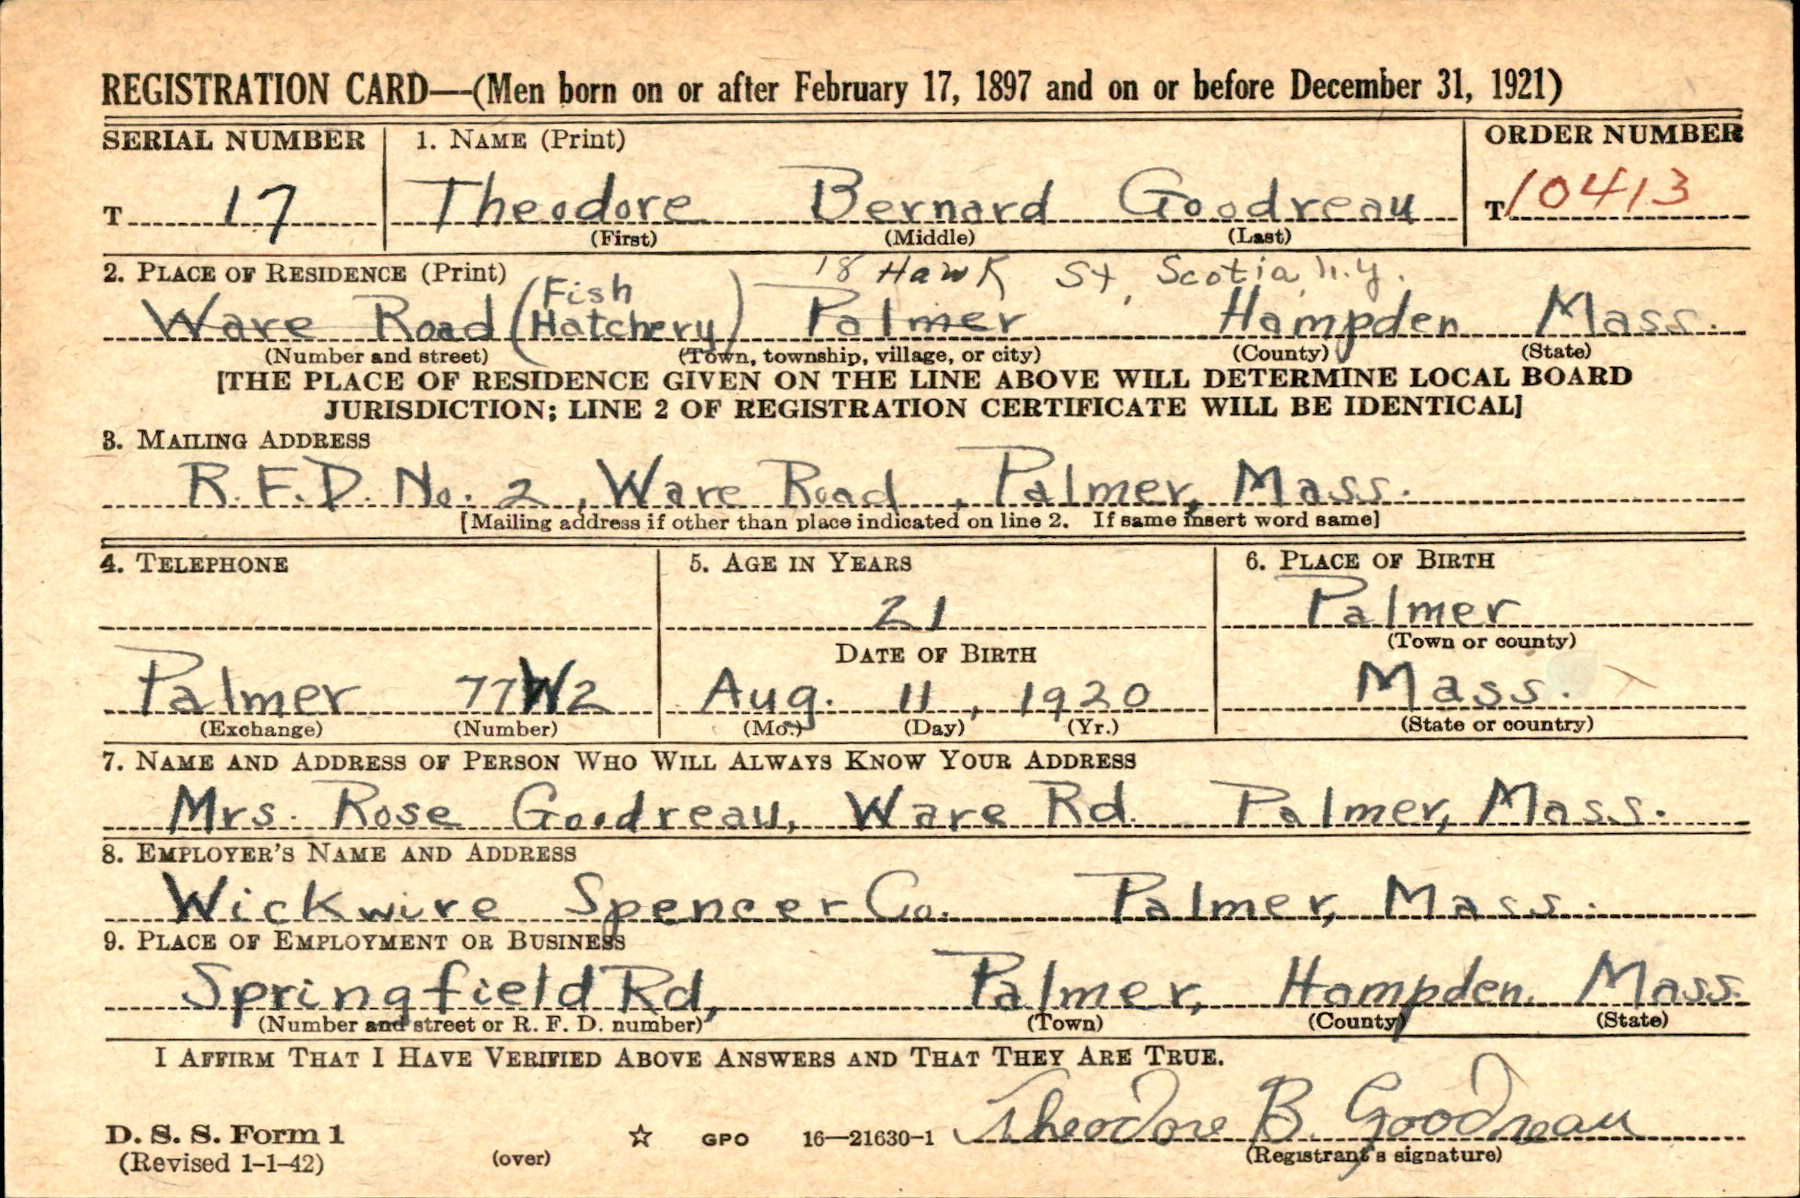 REGISTRATION CARD—(Men born on or after February 17, 1897 and on or before December 31, 1921)
SERIAL NUMBER 1. NAME (Print) ORDER NUMBER
T 17 Theodore Bernard Goodreau T 10413
(First) (Middle) (Last)
2. PLACE OF RESIDENCE (Print) 18 Hawk St, Scotia, N.Y.
Ware Road (Fish Hatchery) Palmer Hampden Mass.
(Number and street) (Town, township, village, or city) (County) (State)
[THE PLACE OF RESIDENCE GIVEN ON THE LINE ABOVE WILL DETERMINE LOCAL BOARD
JURISDICTION; LINE 2 OF REGISTRATION CERTIFICATE WILL BE IDENTICAL]
3. MAILING ADDRESS
R.F.D. No. 2, Ware Road, Palmer, Mass.
[Mailing address if other than place indicated on line 2. If same insert word same]
4. TELEPHONE 5. AGE IN YEARS 6. PLACE OF BIRTH
21 Palmer
DATE OF BIRTH (Town or county)
Palmer 77W2 Aug. 11, 1920 Mass.
(Exchange) (Number) (Mo.) (Day) (Yr.) (State or country)
7. NAME AND ADDRESS OF PERSON WHO WILL ALWAYS KNOW YOUR ADDRESS
Mrs. Rose Goodreau, Ware Rd. Palmer, Mass.
8. EMPLOYER'S NAME AND ADDRESS
Wickwire Spencer Co. Palmer, Mass.
9. PLACE OF EMPLOYMENT OR BUSINESS
Springfield Rd, Palmer, Hampden, Mass.
(Number and street or R. F. D. number) (Town) (County) (State)
I AFFIRM THAT I HAVE VERIFIED ABOVE ANSWERS AND THAT THEY ARE TRUE.
Theodore B. Goodreau
D. S. S. Form 1 GPO 16—21630-1
(Revised 1-1-42) (over) (Registrant's signature)